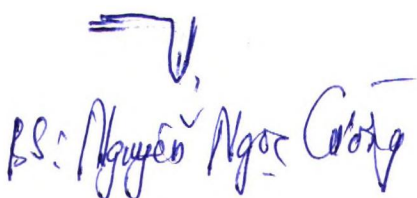 BS: Nguyễn Ngọc Cường